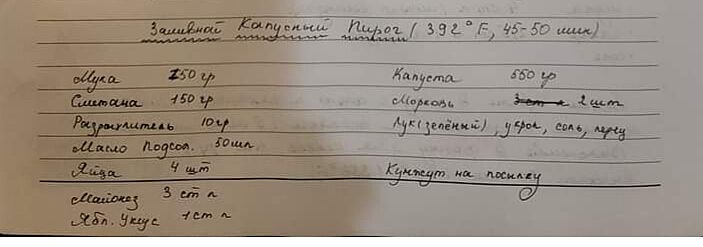 Заливной Капусный Пирог (392°F, 45-50 мин)
Мука 250 гр
Сметана 150 гр
Разрыхлитель 10 гр
Масло Подсол. 50 мл
Яйца 4 шт
Майонез 3 ст л
Ябл. Уксус 1 ст л
Капуста 550 гр
Морковь 3 ст л 2 шт
Лук (зелёный), укроп, соль, перец
Кунжут на посыпку